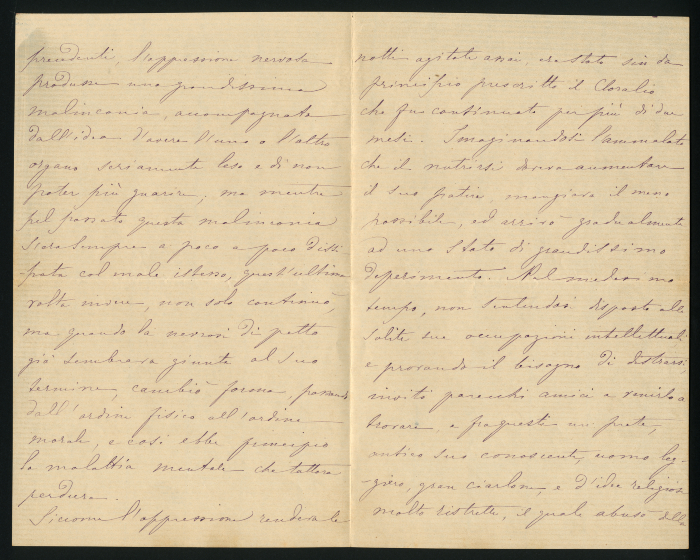 precedenti, l'oppressione nervosa
produsse una grandissima
malinconia, accompagnata
dall'idea d'avere l'uno o l'altro
organo seriamente leso e di non
poter più guarire; ma mentre
pel passato questa malinconia
s'era sempre a poco a poco dissi-
-pata col male istesso, quest'ultima
volta invece, non solo continuò,
ma quando la nevrosi di petto
già sembrava giunta al suo
termine, cambiò forma, passando
dall'ordine fisico all'ordine
morale, e così ebbe principio
la malattia mentale che tuttora
perdura.
Siccome l'oppressione rendeva le
notti agitate assai, era stato sin da
principio prescritto il Cloralio
che fu continuato per più di due
mesi. Imaginandosi l'ammalato
che il nutrirsi doveva aumentare
il suo patire, mangiava il meno
possibile, ed arrivò gradualmente
ad uno stato di grandissimo
deperimento. Nel medesimo
tempo, non sentendosi disposto alle
solite sue occupazioni intellettuali
e provando il bisogno di distrarsi
invitò parecchi amici a venirlo a
trovare, e fra questi un prete,
antico suo conoscente, uomo leg-
-giero, gran ciarlone, e d'idee religiose
molto ristrette, il quale abusò della